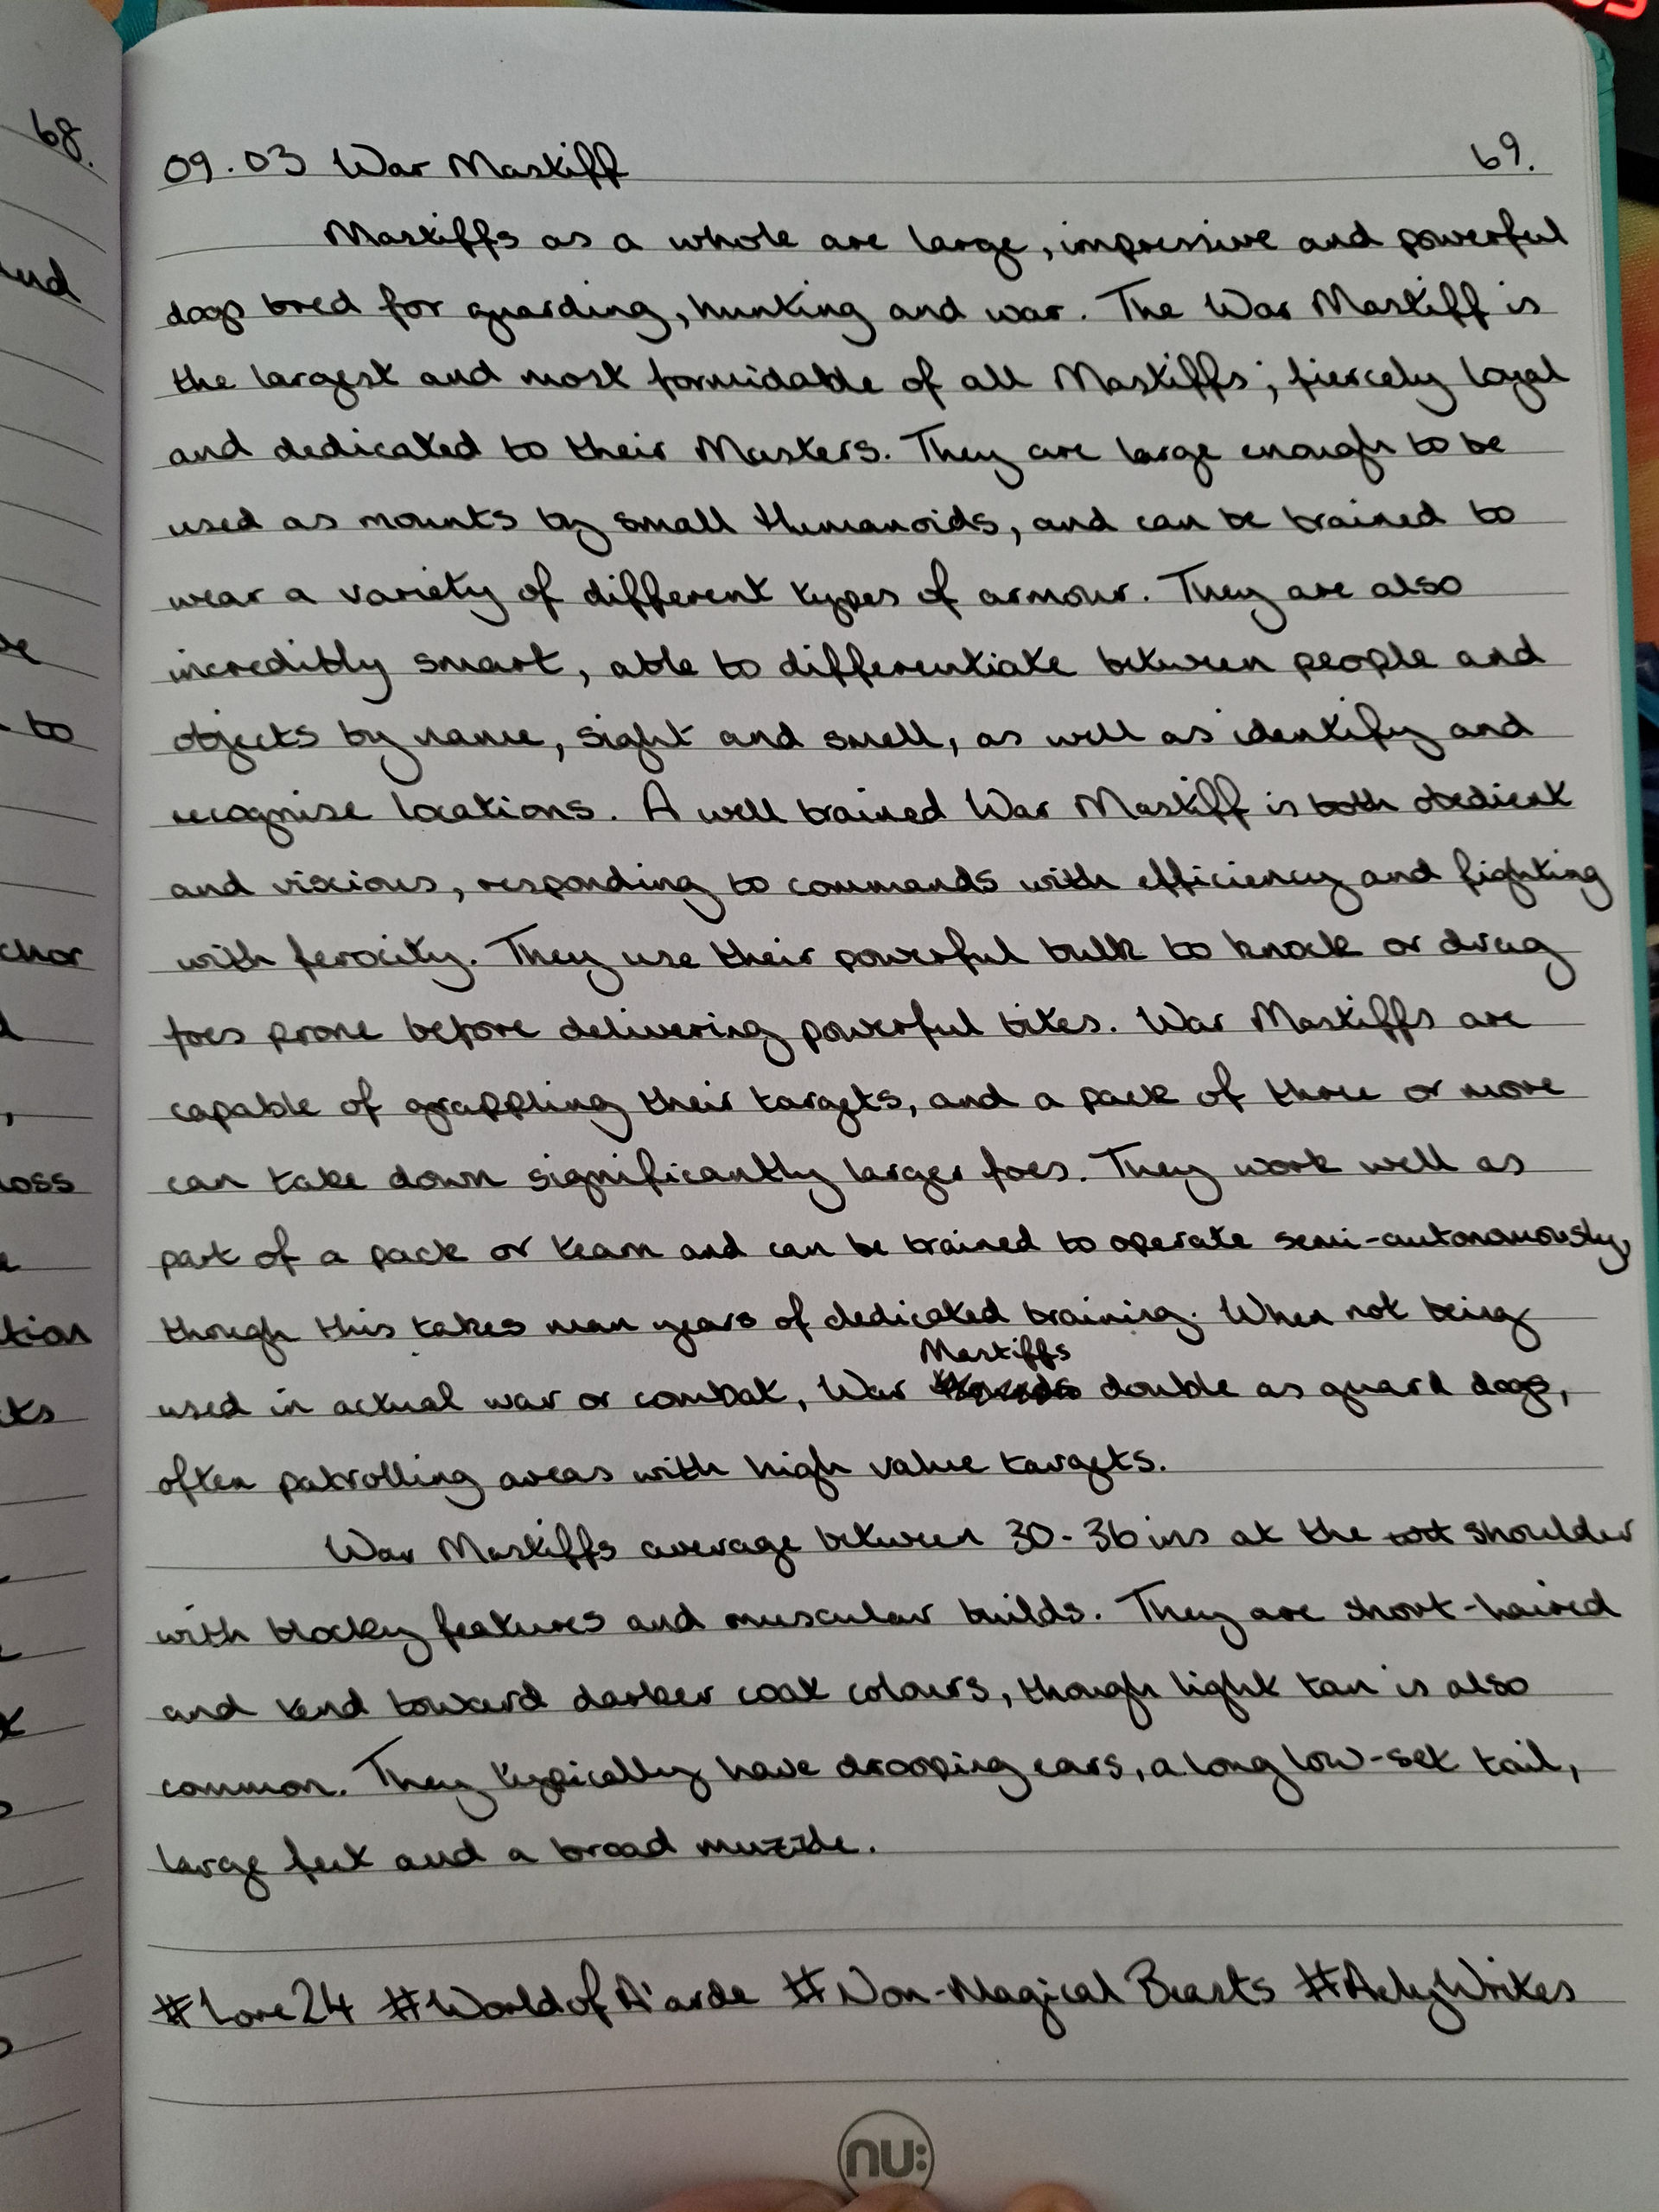 68.
09.03 War Mastiff 69.
Mastiffs as a whole are large, impressive and powerful
dogs bred for guarding, hunting and war. The War Mastiff is
the largest and most formidable of all Mastiffs; fiercely loyal
and dedicated to their Masters. They are large enough to be
used as mounts by small Humanoids, and can be trained to
wear a variety of different types of armour. They are also
incredibly smart, able to differentiate between people and
objects by name, sight and smell, as well as identify and
recognise locations. A well trained War Mastiff is both obedient
and vixious, responding to commands with efficiency and fighting
with ferocity. They use their powerful bulk to knock or drag
foes prone before delivering powerful bites. War Mastiffs are
capable of grappling their targets, and a pack of three or more
can take down significantly larger foes. They work well as
part of a pack or team and can be trained to operate semi-autonomously,
though this takes man years of dedicated training. When not being
used in actual war or combat, War Mastiffs double as guard dogs,
often patrolling areas with high value targets.
War Mastiffs average between 30-36ins at the shoulder
with blocky features and muscular builds. They are short-haired
and tend toward darker coat colours, though light tan is also
common. They typically have drooping ears, a long low-set tail,
large feet and a broad muzzle.
#Lore24 #WorldofA'arde #Non-Magical Beasts #AelyWrites
nu: